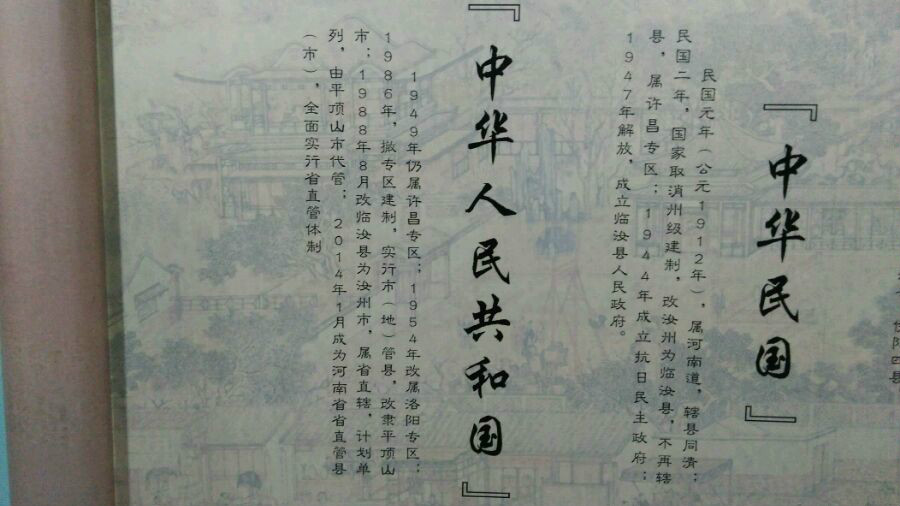 『中华民国』
民国元年（公元1912年），属河南道，辖县同清；
民国二年，国家取消州级建制，改汝州为临汝县，不再辖
县，属许昌专区；1944年成立抗日民主政府；
1947年解放，成立临汝县人民政府。
『中华人民共和国』
1949年仍属许昌专区；1954年改属洛阳专区；
1986年，撤专区建制，实行市（地）管县，改隶平顶山
市；1988年8月改临汝县为汝州市，属省直辖，计划单
列，由平顶山市代管；2014年1月成为河南省省直管县
（市），全面实行省直管体制